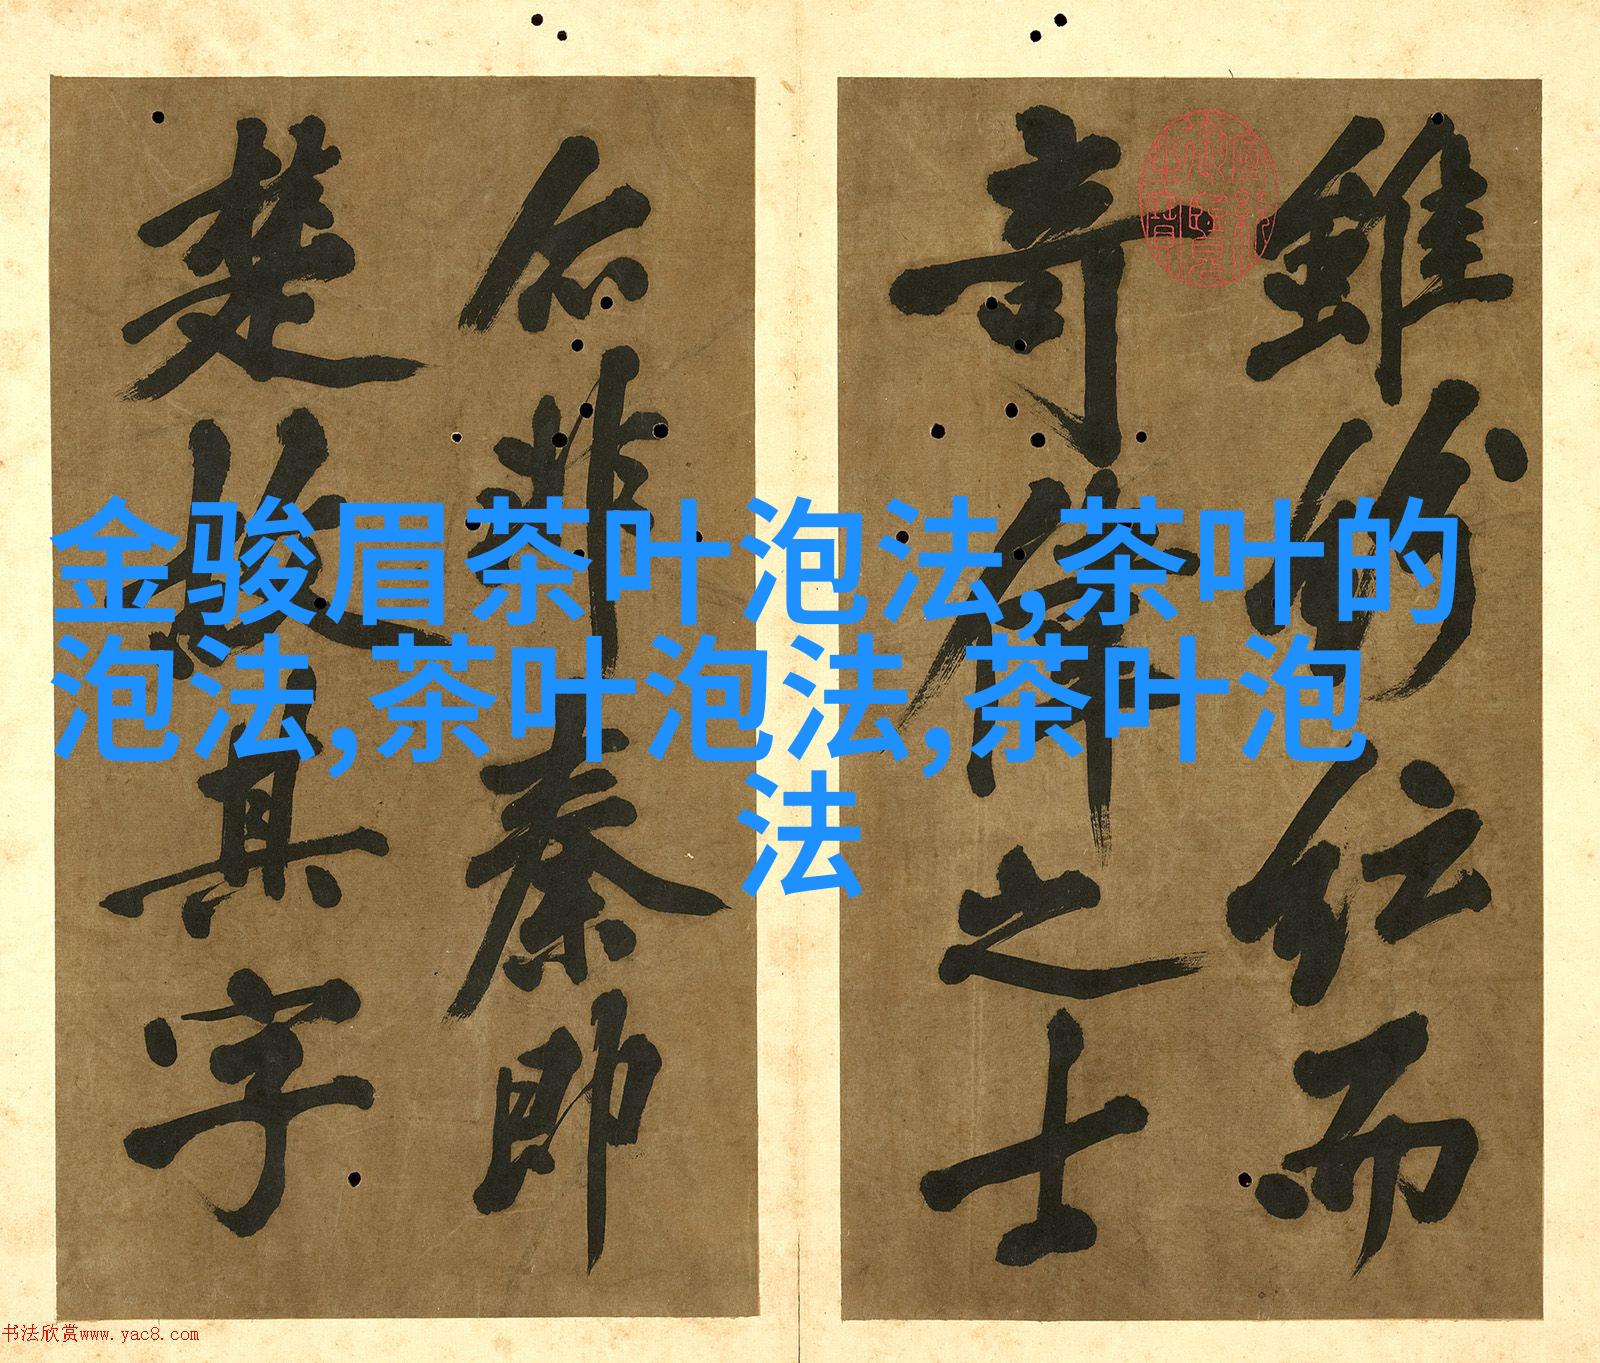 金骏眉茶叶泡法,茶叶的
泡法,茶叶泡法,茶叶泡
法
雖仕而
奇偉之士
非秦即
楚故其字
书法欣赏www.yac8.com